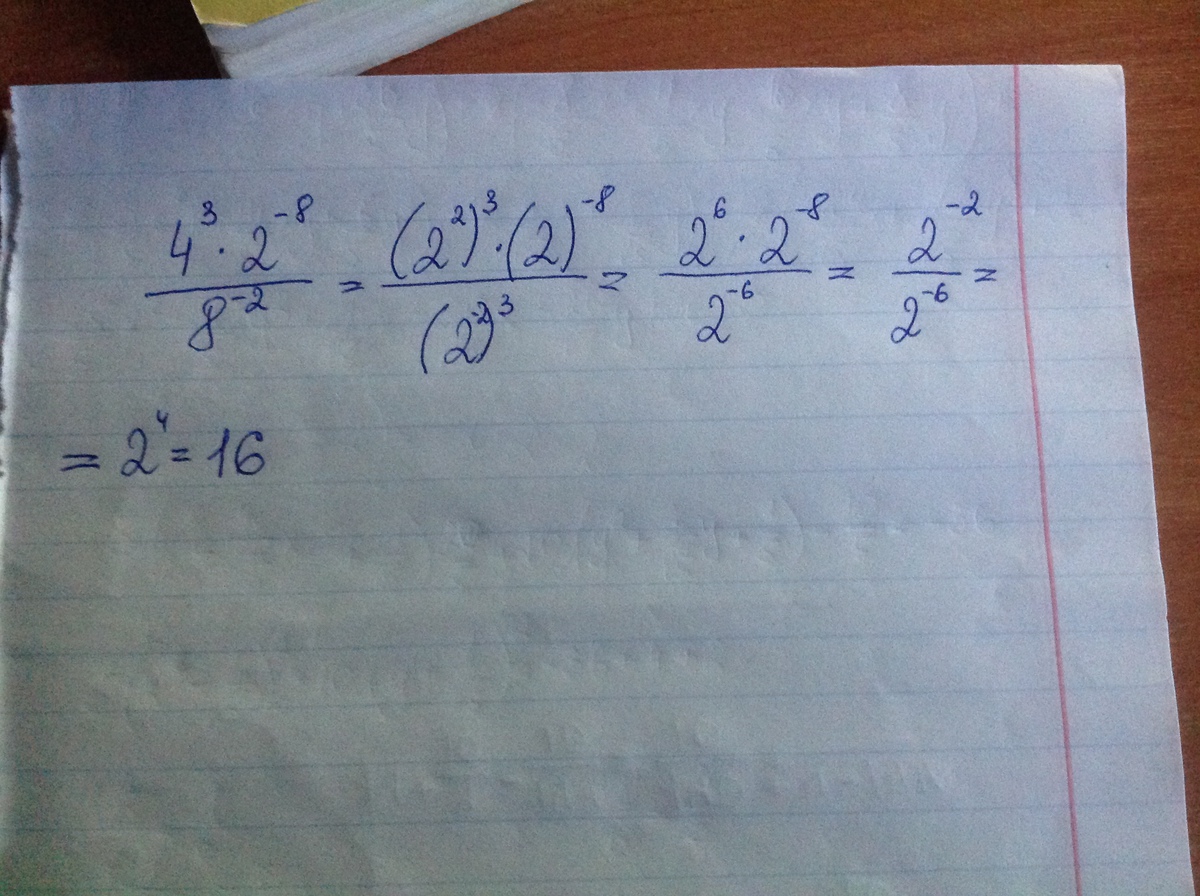 4³ · 2⁻⁸ / 8⁻² = (2²)³ · (2)⁻⁸ / (2⁻²)³ = 2⁶ · 2⁻⁸ / 2⁻⁶ = 2⁻² / 2⁻⁶ =
= 2⁴ = 16